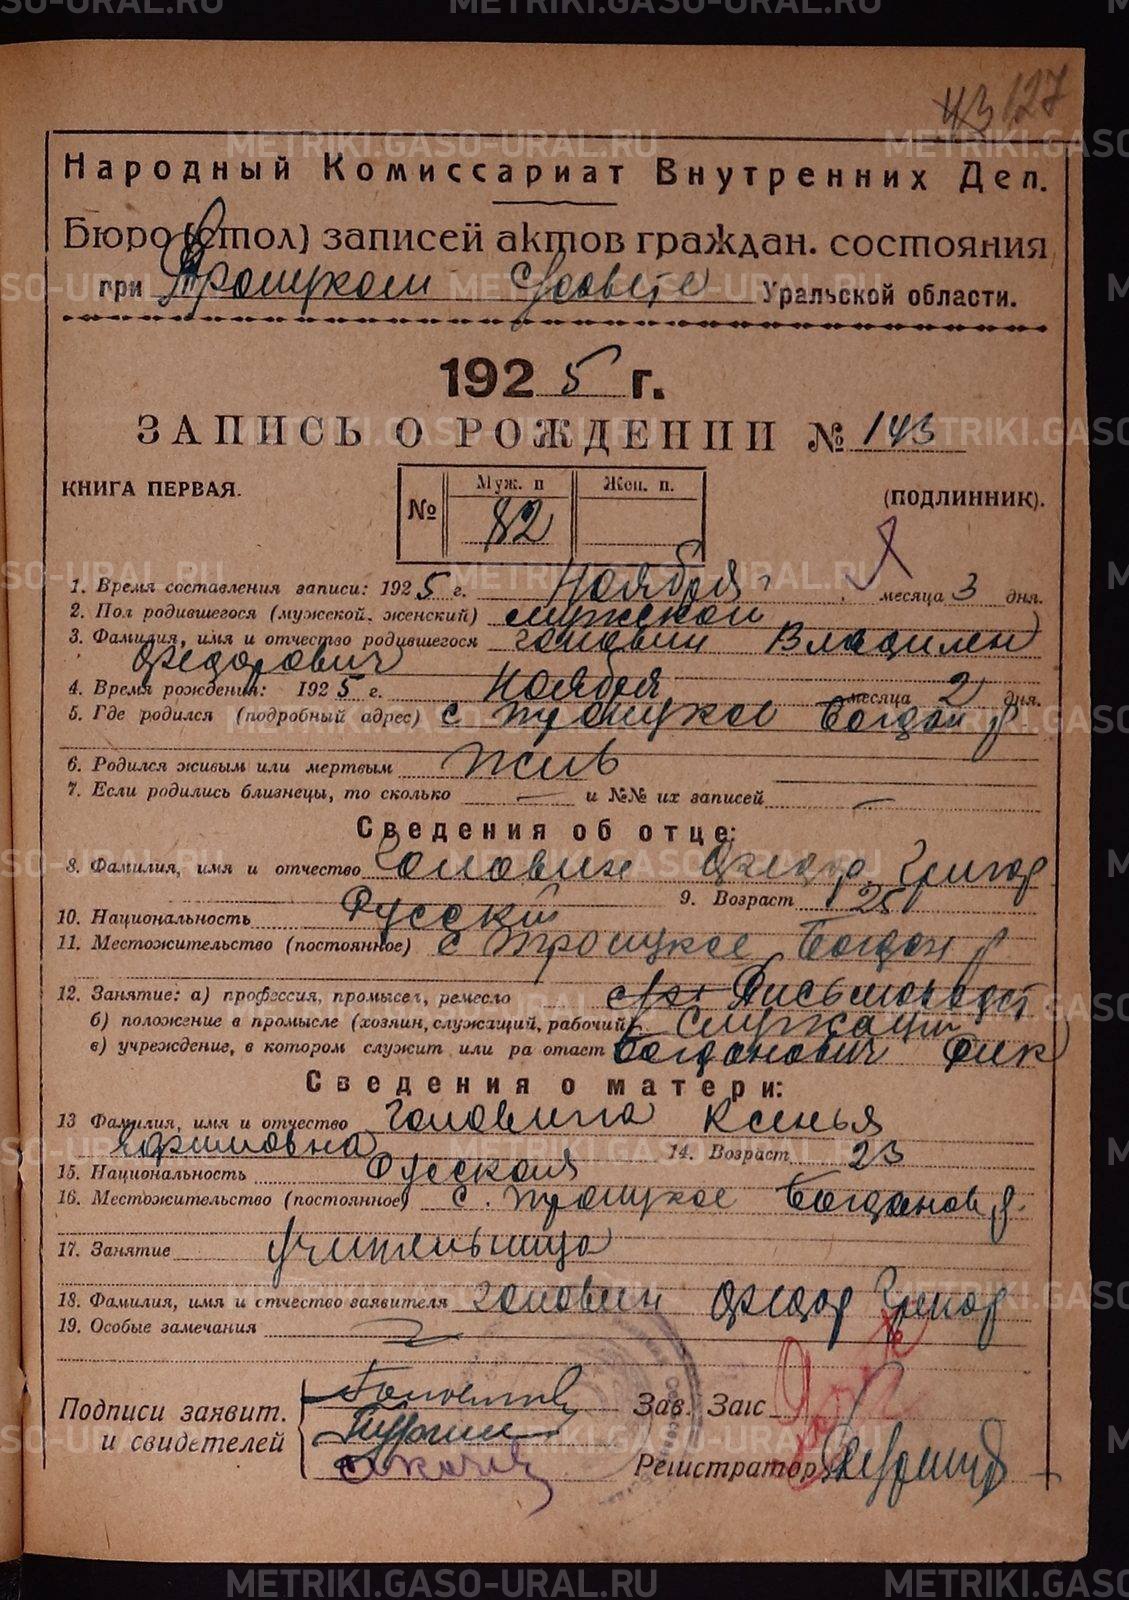 43 127
Народный Комиссариат Внутренних Дел.
Бюро (стол) записей актов граждан. состояния
при Троицком с/совете Уральской области.
1925 г.
ЗАПИСЬ О РОЖДЕНИИ № 143
КНИГА ПЕРВАЯ.
№ Муж. п Жен. п.
82
(ПОДЛИННИК).
1. Время составления записи: 1925 г. Ноября месяца 3 дня.
2. Пол родившегося (мужской, женский) мужской
3. Фамилия, имя и отчество родившегося Головин Владилен
Федорович
4. Время рождения: 1925 г. Ноября месяца 2 дня.
5. Где родился (подробный адрес) с Троицкое Богдан р
6. Родился живым или мертвым Жив
7. Если родились близнецы, то сколько — и №№ их записей —
Сведения об отце:
8. Фамилия, имя и отчество Головин Федор Григор
9. Возраст 25
10. Национальность Русский
11. Местожительство (постоянное) с Троицкое Богдан р
12. Занятие: а) профессия, промысел, ремесло Письмоводит
б) положение в промысле (хозяин, служащий, рабочий) Служащий
в) учреждение, в котором служит или ра отает Богданович Рик
Сведения о матери:
13 Фамилия, имя и отчество Головина Ксенья
Ефимовна 14. Возраст 23
15. Национальность Русская
16. Местожительство (постоянное) с. Троицкое Богданов р.
17. Занятие Учительница
18. Фамилия, имя и отчество заявителя Головин Федор Григор
19. Особые замечания
Подписи заявит.
и свидетелей
Зав. Загс
Регистратор
METRIKI.GASO-URAL.RU